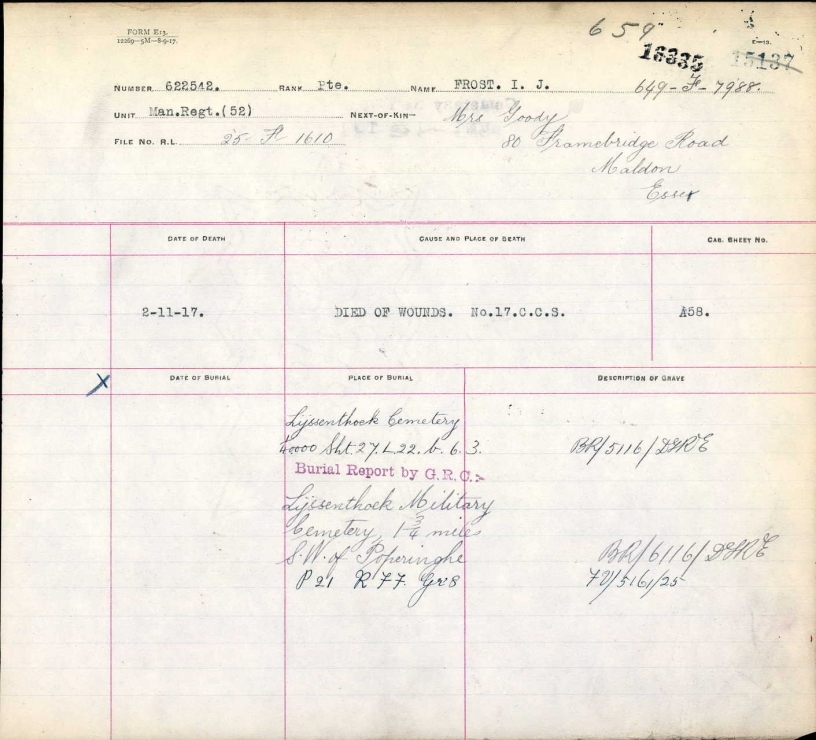 FORM E13.
12269—5M—8-9-17.
659
16335
E—13.
15137
649-F-7988.
NUMBER 622542. RANK Pte. NAME FROST. I. J.
UNIT Man.Regt.(52) NEXT-OF-KIN— Mrs Goody
80 Framebridge Road
Maldon
Essex
FILE NO. R.L. 25-A 1610
DATE OF DEATH CAUSE AND PLACE OF DEATH CAS. SHEET NO.
2-11-17. DIED OF WOUNDS. No.17.C.C.S. A58.
X DATE OF BURIAL PLACE OF BURIAL DESCRIPTION OF GRAVE
Lijssenthoek Cemetery
40000 Sht.27.L.22.b.6.3. BR/5116/DGRE
Burial Report by G.R.C:-
Lijssenthoek Military
Cemetery, 1 3/4 miles
S.W. of Poperinghe BR/6116/DGRE
P 21 R FF Gr 8 FV/5161/25